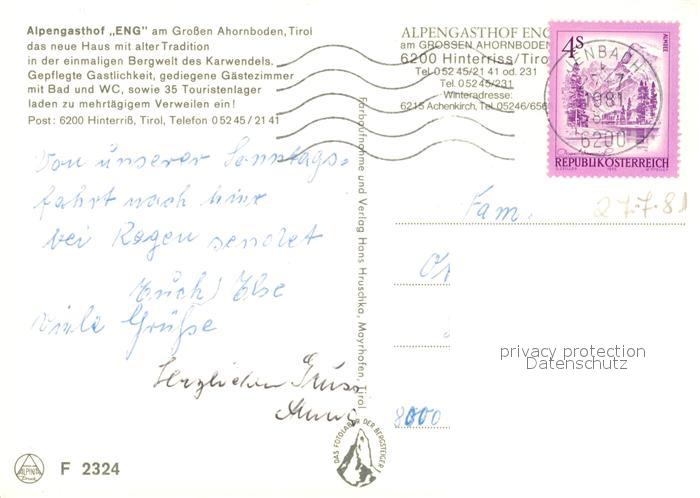 Alpengasthof „ENG" am Großen Ahornboden, Tirol
das neue Haus mit alter Tradition
in der einmaligen Bergwelt des Karwendels.
Gepflegte Gastlichkeit, gediegene Gästezimmer
mit Bad und WC, sowie 35 Touristenlager
laden zu mehrtägigem Verweilen ein!
Post: 6200 Hinterriß, Tirol, Telefon 0 52 45 / 21 41
ALPENGASTHOF ENG
am GROSSEN AHORNBODEN
6200 Hinterriss/Tirol
Tel. 0 52 45/21 41 od. 231
Tel. 0 52 45/231
Winteradresse:
6215 Achenkirch, Tel. 05246/656
4s
ALMSEE
JENBACH
1981
6200
REPUBLIK ÖSTERREICH
Von unserer Sonntags-
fahrt nach hier
bei Regen sendet
Euch Else
Viele Grüße
Herzlichen Gruss
Fam.
27.7.81
privacy protection
Datenschutz
8000
Farbaufnahme und Verlag Hans Hruschka, Mayrhofen, Tirol
DAS FOTOLABOR DER BERGSTEIGER
ALPINA
Druck
F 2324